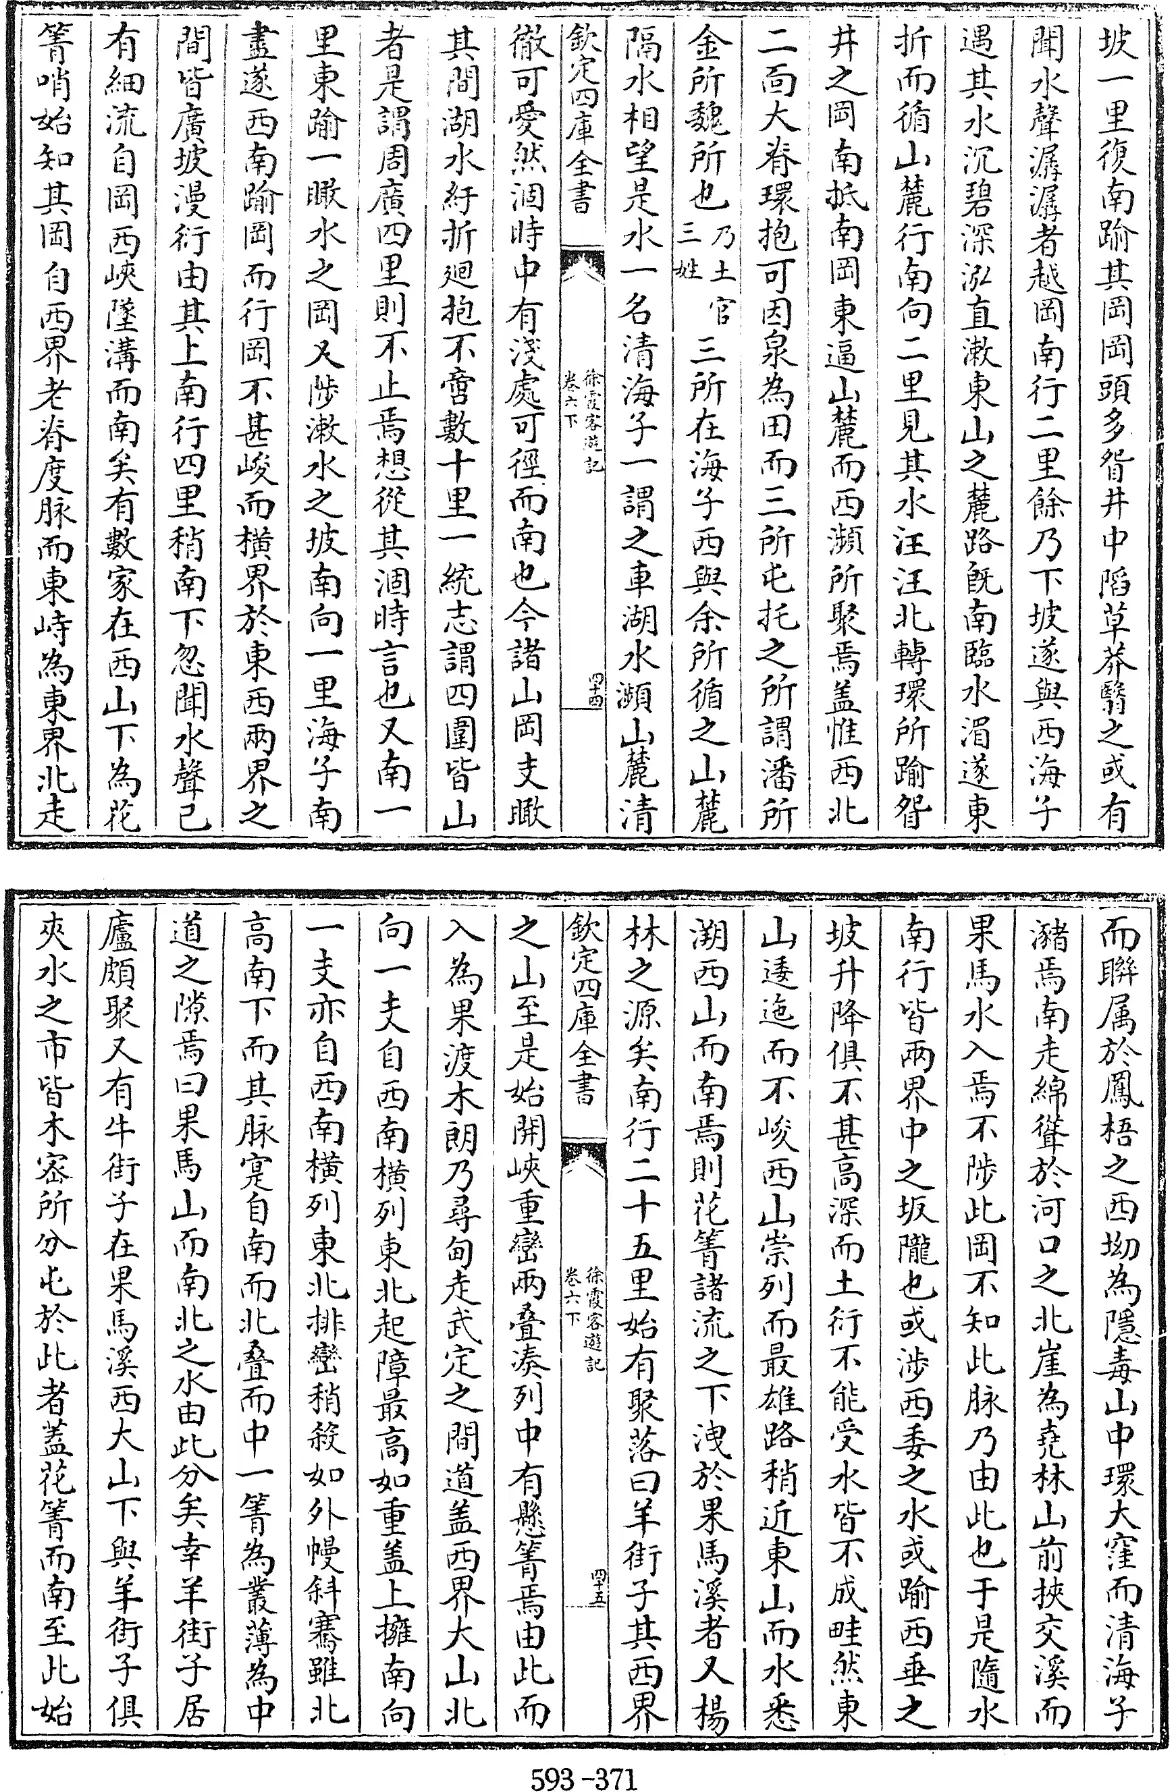 坡一里復南踰其岡岡頭多眢井中䧟草莽翳之或有
聞水聲潺潺者越岡南行二里餘乃下坡遂與西海子
遇其水沉碧深泓直漱東山之麓路既南臨水湄遂東
折而循山麓行南向二里見其水汪汪北轉環所踰眢
井之岡南抵南岡東逼山麓而西瀕所聚焉盖惟西北
二面大脊環抱可因泉為田而三所屯托之所謂潘所
金所魏所也乃土官三姓三所在海子西與余所循之山麓
隔水相望是水一名清海子一謂之車湖水瀕山麓清
欽定四庫全書
徐霞客遊記
卷六下
四十四
徹可愛然涸時中有淺處可徑而南也今諸山岡支瞰
其間湖水紆折廻抱不啻數十里一統志謂四圍皆山
者是謂周廣四里則不止焉想從其涸時言也又南一
里東踰一瞰水之岡又陟漱水之坡南向一里海子南
盡遂西南踰岡而行岡不甚峻而橫界於東西兩界之
間皆廣坡漫衍由其上南行四里稍南下忽聞水聲已
有細流自岡西峽墜溝而南矣有數家在西山下為花
箐哨始知其岡自西界老脊度脉而東峙為東界北走
而聨属於鳳梧之西坳為隱毒山中環大窪而清海子
瀦焉南走綿聳於河口之北崖為堯林山前挾交溪而
果馬水入焉不陟此岡不知此脉乃由此也于是隨水
南行皆兩界中之坂隴也或涉西委之水或踰西垂之
坡升降俱不甚高深而土衍不能受水皆不成畦然東
山逶迤而不峻西山崇列而最雄路稍近東山而水悉
溯西山而南焉則花箐諸流之下洩於果馬溪者又楊
林之源矣南行二十五里始有聚落曰羊街子其西界
欽定四庫全書
徐霞客遊記
卷六下
四十五
之山至是始開峽重巒兩叠湊列中有懸箐焉由此而
入為果渡木朗乃尋甸走武定之間道盖西界大山北
向一支自西南橫列東北起障最高如重盖上擁南向
一支亦自西南橫列東北排巒稍殺如外幔斜騫雖北
高南下而其脉寔自南而北叠而中一箐為叢薄為中
道之隙焉曰果馬山而南北之水由此分矣幸羊街子居
廬頗聚又有牛街子在果馬溪西大山下與羊街子俱
夾水之市皆木宻所分屯於此者蓋花箐而南至此始
593-371